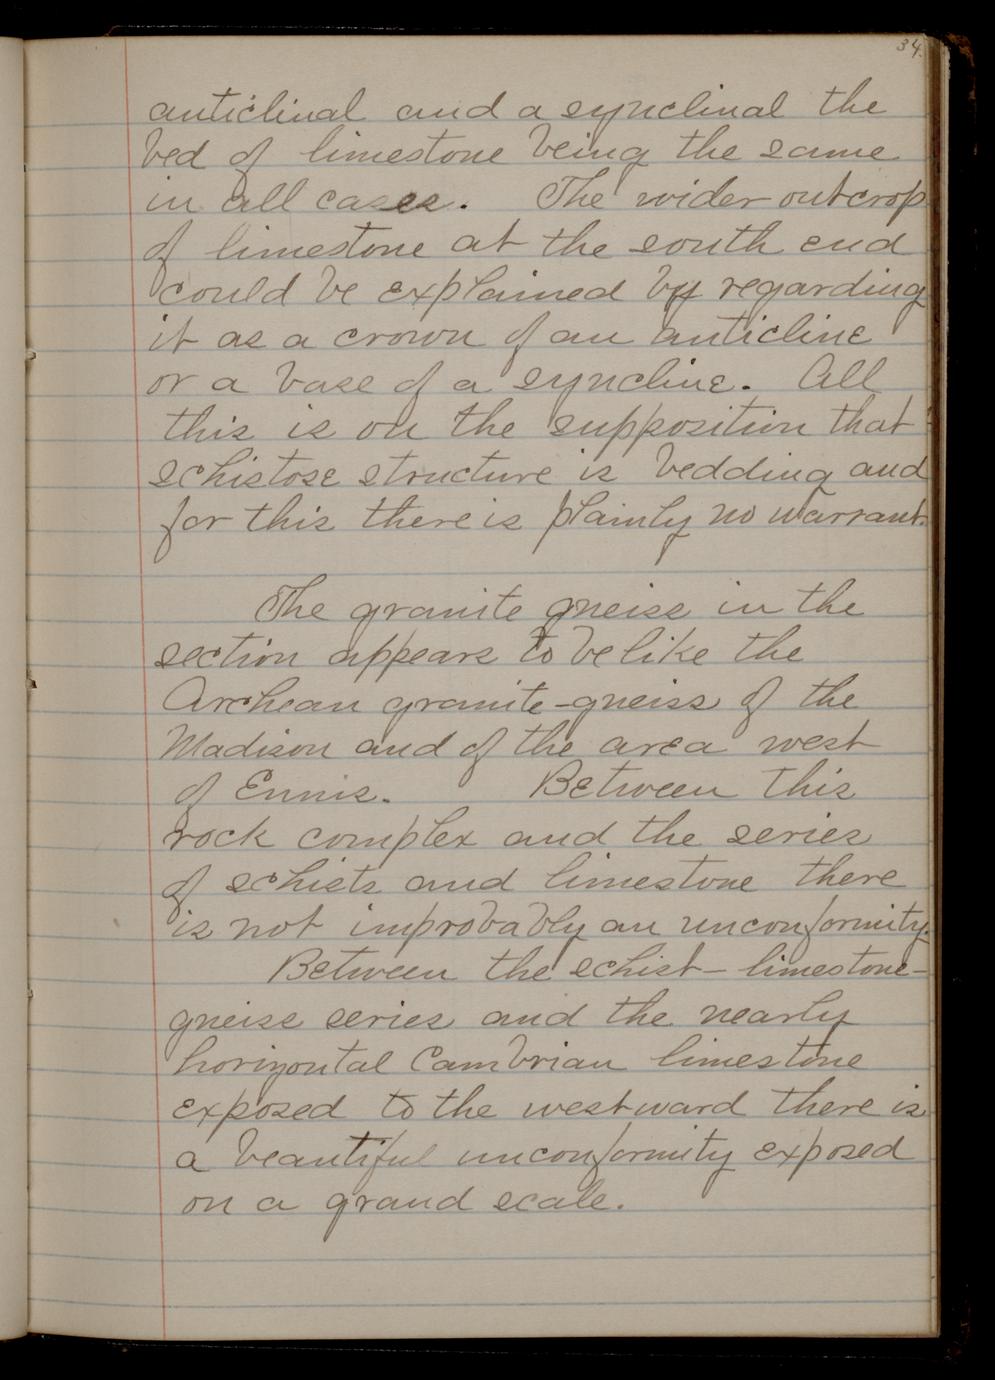 34.
anticlinal and a synclinal the
bed of limestone being the same
in all cases. The wider outcrop
of limestone at the south end
could be explained by regarding
it as a crown of an anticline
or a base of a syncline. All
this is on the supposition that
schistose structure is bedding and
for this there is plainly no warrant.
The granite gneiss in the
section appears to be like the
Archean granite-gneiss of the
Madison and of the area west
of Ennis. Between this
rock complex and the series
of schists and limestone there
is not improbably an unconformity.
Between the schist-limestone-
gneiss series and the nearly
horizontal Cambrian limestone
exposed to the westward there is
a beautiful unconformity exposed
on a grand scale.